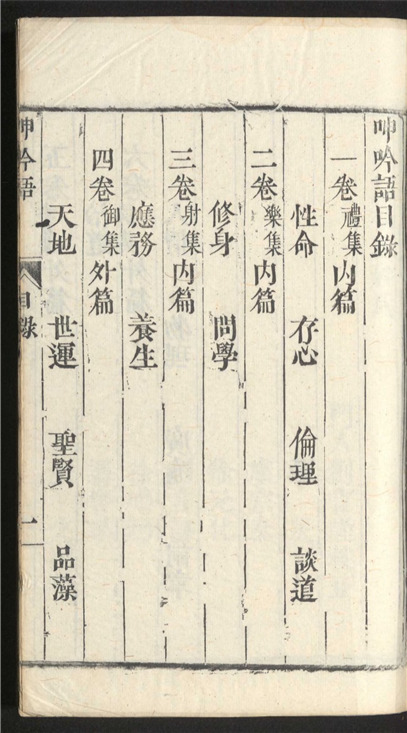 呻吟語目錄
一卷禮集內篇
性命 存心 倫理 談道
二卷樂集內篇
修身 問學
三卷射集內篇
應務 養生
四卷御集外篇
天地 世運 聖賢 品藻
呻吟語 目錄 一